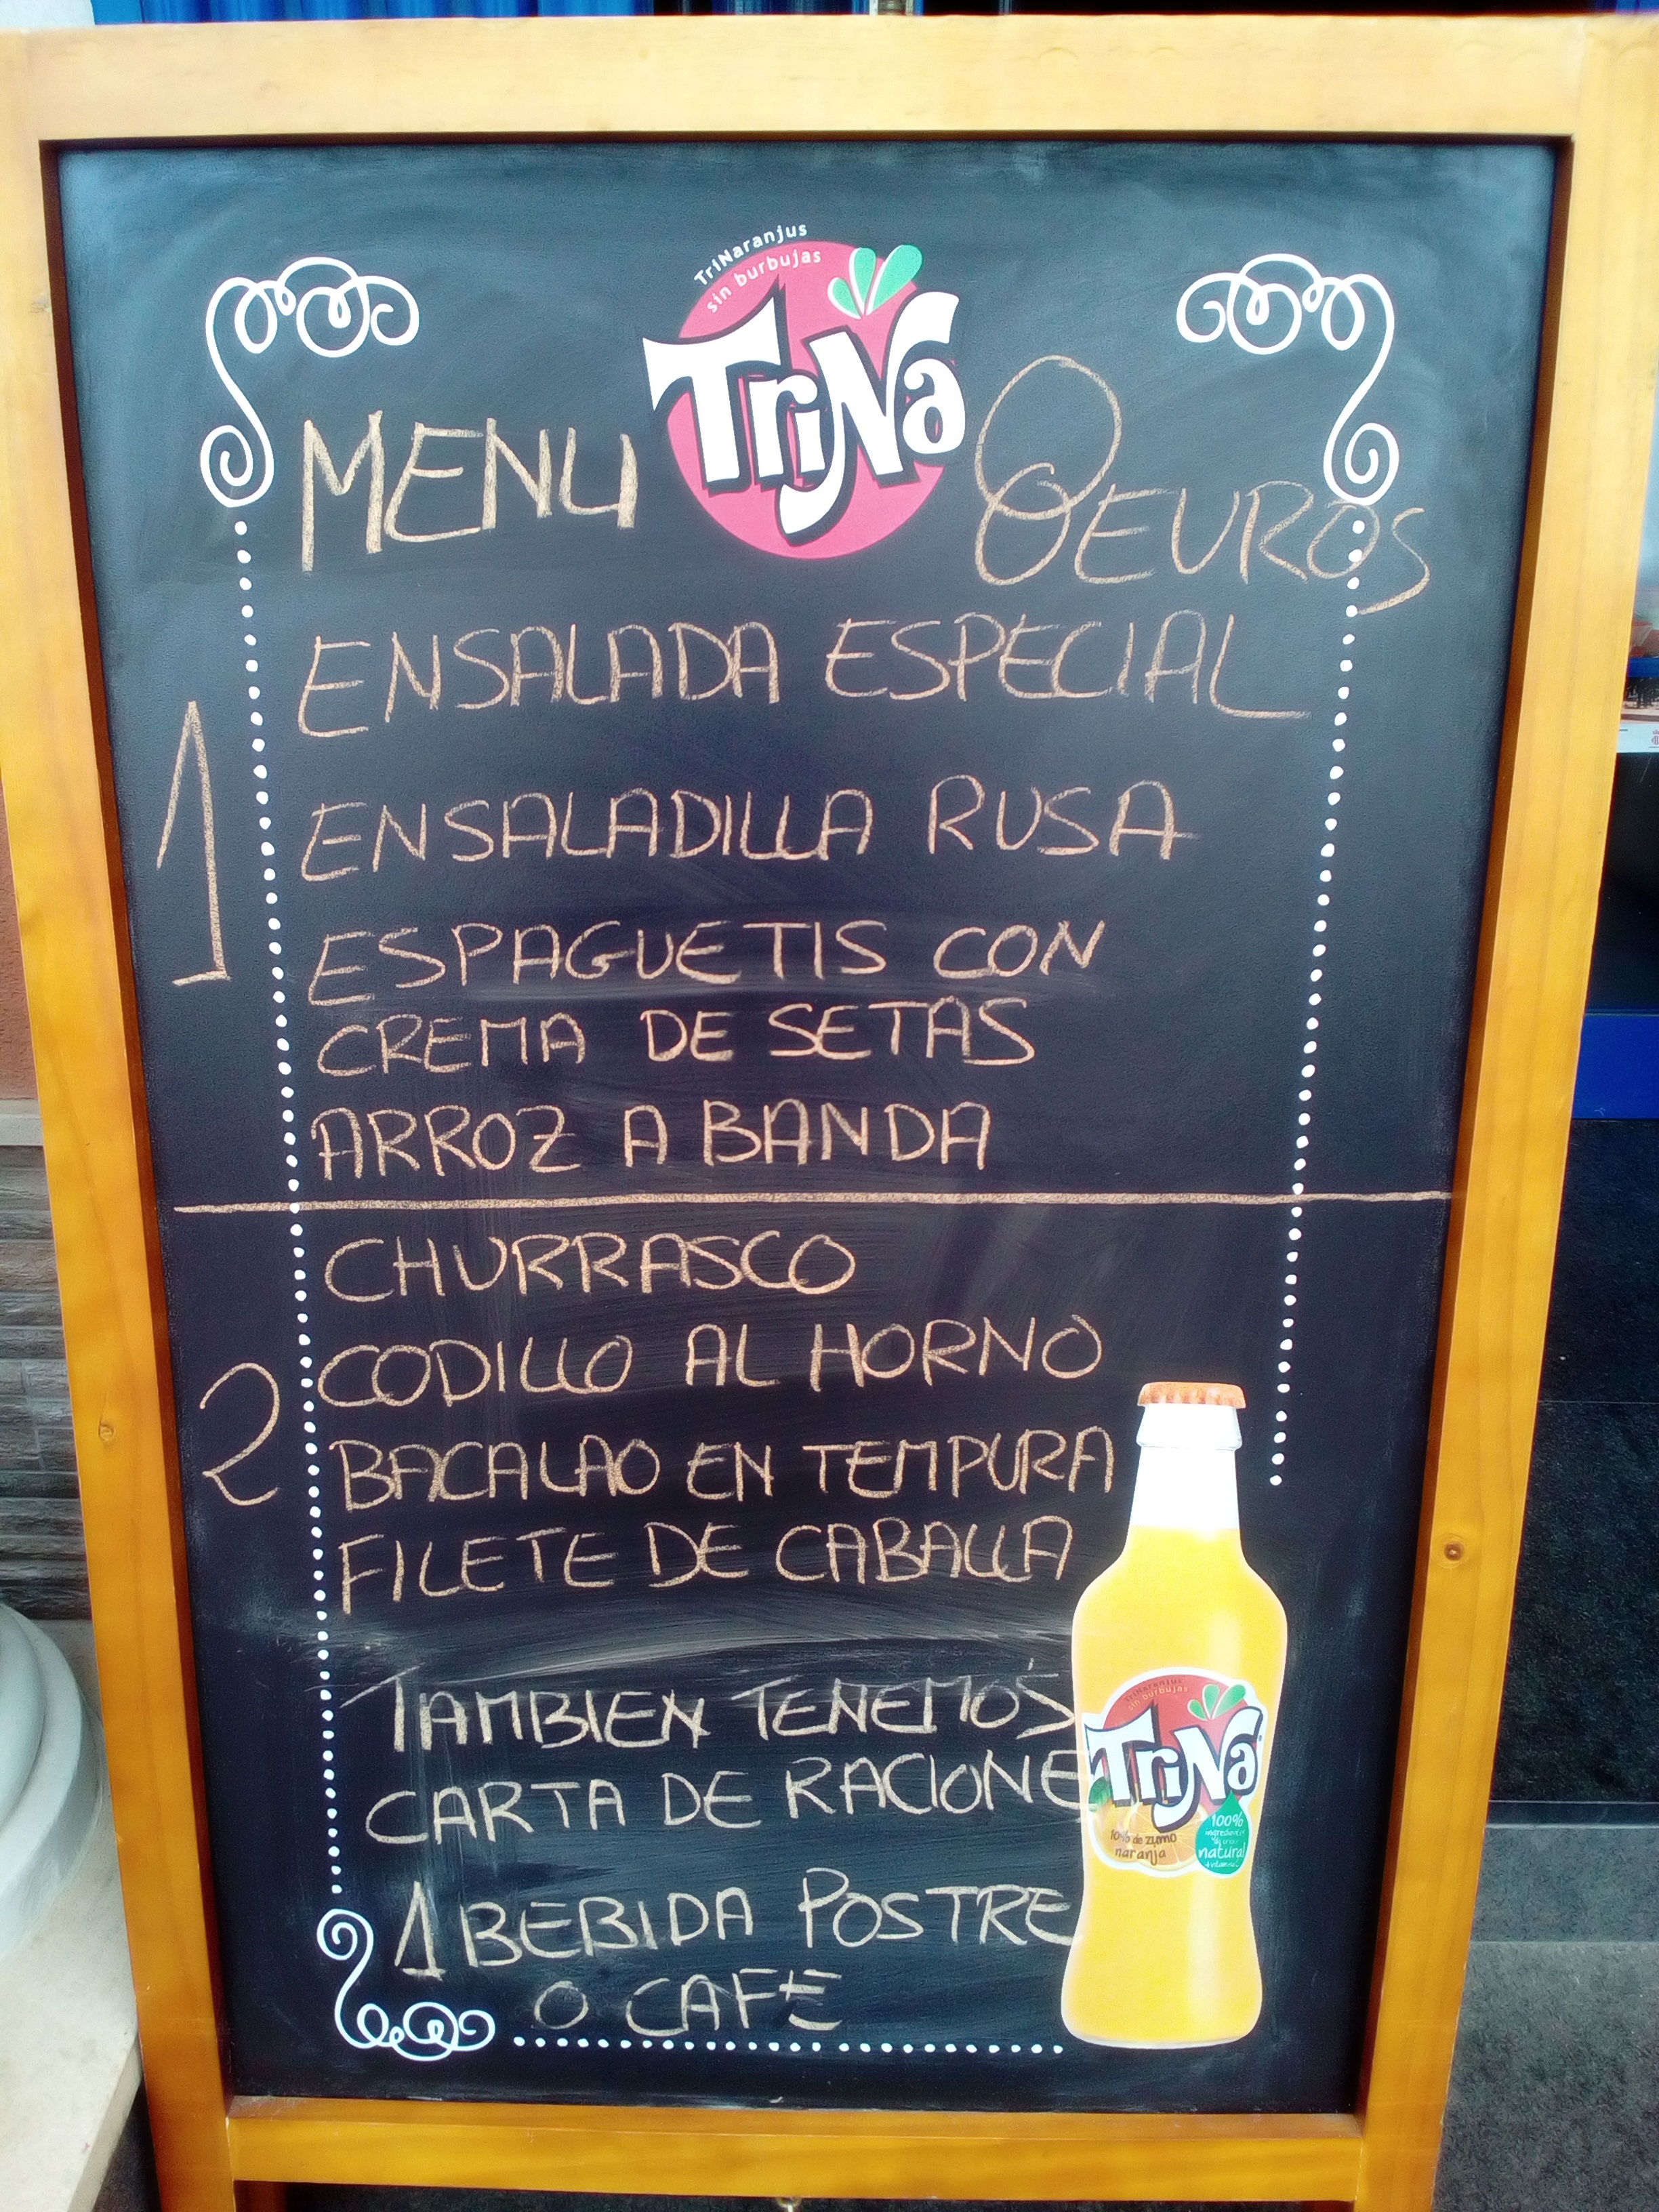 TriNaranjus
sin burbujas
TriNa
MENU 8 EUROS
1
ENSALADA ESPECIAL
ENSALADILLA RUSA
ESPAGUETIS CON
CREMA DE SETAS
ARROZ A BANDA
2
CHURRASCO
CODILLO AL HORNO
BACALAO EN TEMPURA
FILETE DE CABALLA
TAMBIEN TENEMOS
CARTA DE RACIONE
1 BEBIDA POSTRE
O CAFE
TriNaranjus
sin burbujas
TriNa
10% de zumo
naranja
100%
natural